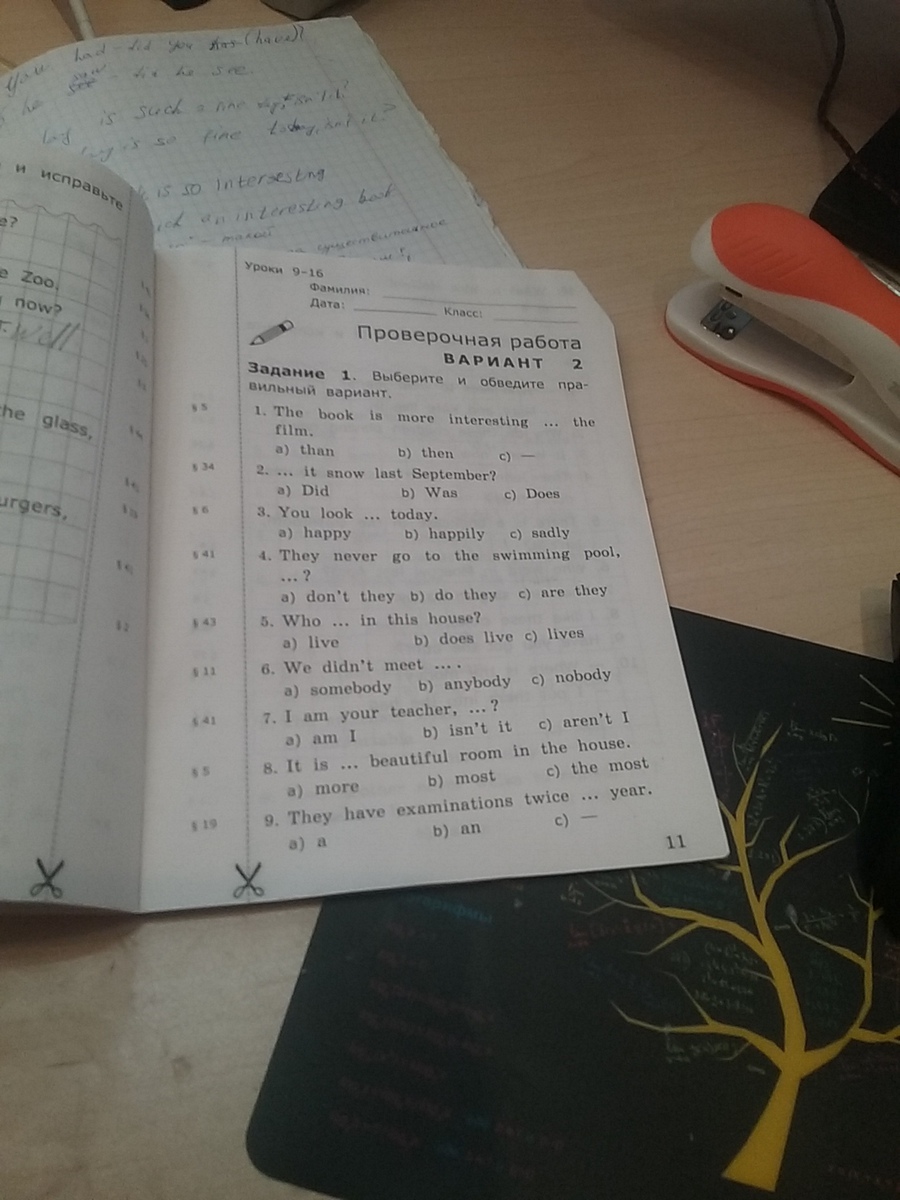 You had - did you (have)?
he saw see - he see.
is such a fine day, isn't it?
is so fine today, isn't it?
is so interesting
an interesting book
и исправьте
e?
e Zoo.
now?
Well
the glass,
urgers,
Уроки 9–16
Фамилия:
Дата: Класс:
Проверочная работа
ВАРИАНТ 2
Задание 1. Выберите и обведите пра-
вильный вариант.
§ 5 1. The book is more interesting ... the
film.
a) than b) then c) —
§ 34 2. ... it snow last September?
a) Did b) Was c) Does
§ 6 3. You look ... today.
a) happy b) happily c) sadly
§ 41 4. They never go to the swimming pool,
... ?
a) don't they b) do they c) are they
§ 43 5. Who ... in this house?
a) live b) does live c) lives
§ 11 6. We didn't meet ... .
a) somebody b) anybody c) nobody
§ 41 7. I am your teacher, ... ?
a) am I b) isn't it c) aren't I
§ 5 8. It is ... beautiful room in the house.
a) more b) most c) the most
§ 19 9. They have examinations twice ... year.
a) a b) an c) —
11